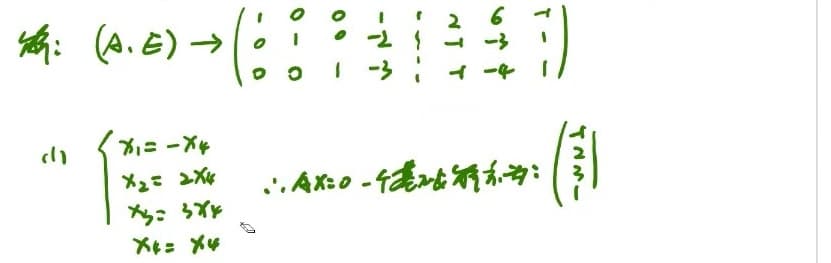 解: (A,E) → ( 1 0 0 1 ⋮ 2 6 -1
0 1 0 -2 ⋮ -1 -3 1
0 0 1 -3 ⋮ -1 -4 1 )
(1) { x₁= -x₄
x₂= 2x₄
x₃= 3x₄
x₄= x₄
∴ AX=0 一个基础解系为: ( -1
2
3
1 )